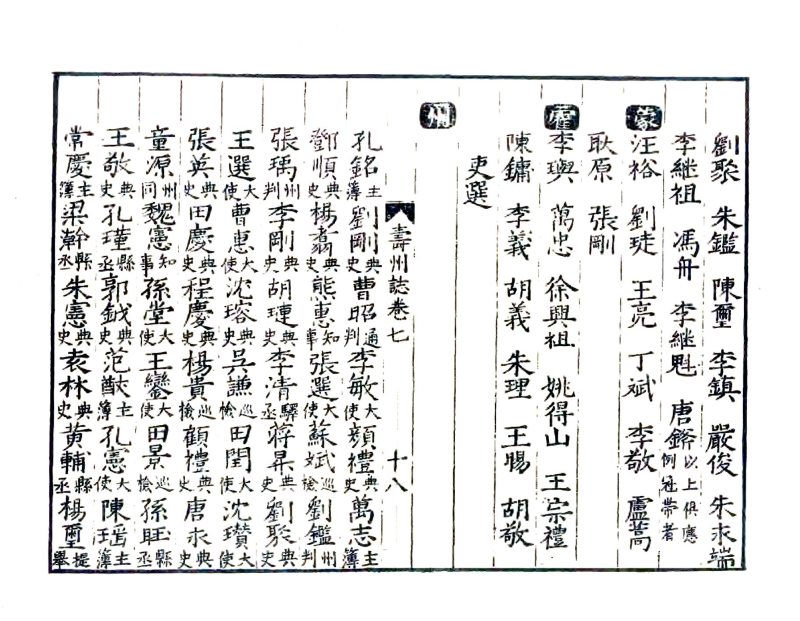 劉聚 朱鑑 陳璽 李鎮 嚴俊 朱永端
李継祖 馮舟 李継魁 唐鏘 以上俱應例冠帶者
蒙 汪裕 劉 王亮 丁斌 李敬 盧蒿
耿原 張剛
霍 李璵 萬忠 徐興祖 姚得山 王宗禮
陳鏞 李義 胡義 朱理 王賜 胡敬
吏選
州
壽州誌卷七 十八
孔銘主簿 劉剛典史 曹昭通判 李敏大使 顔禮典史 萬志主簿
鄧順典史 楊翥典史 熊惠知事 張選大使 蘇斌巡檢 劉鑑州判
張瑀州判 李剛典史 胡璉典史 李清驛丞 蒋昇典史 劉聚典史
王選大使 曹惠大使 沈瑢典史 吳謙巡檢 田閏大使 沈瓚大使
張英典史 田慶典史 程慶典史 楊貴巡檢 顧禮典史 唐永典史
童源州同 魏憲知事 孫堂大使 王鑾大使 田景巡檢 孫旺縣丞
王敬典史 孔瑾縣丞 郭鉞典史 范猷主簿 孔憲大使 陳瑀主簿
常慶主簿 梁瀚縣丞 朱憲典史 袁林典史 黃輔縣丞 楊璽提舉